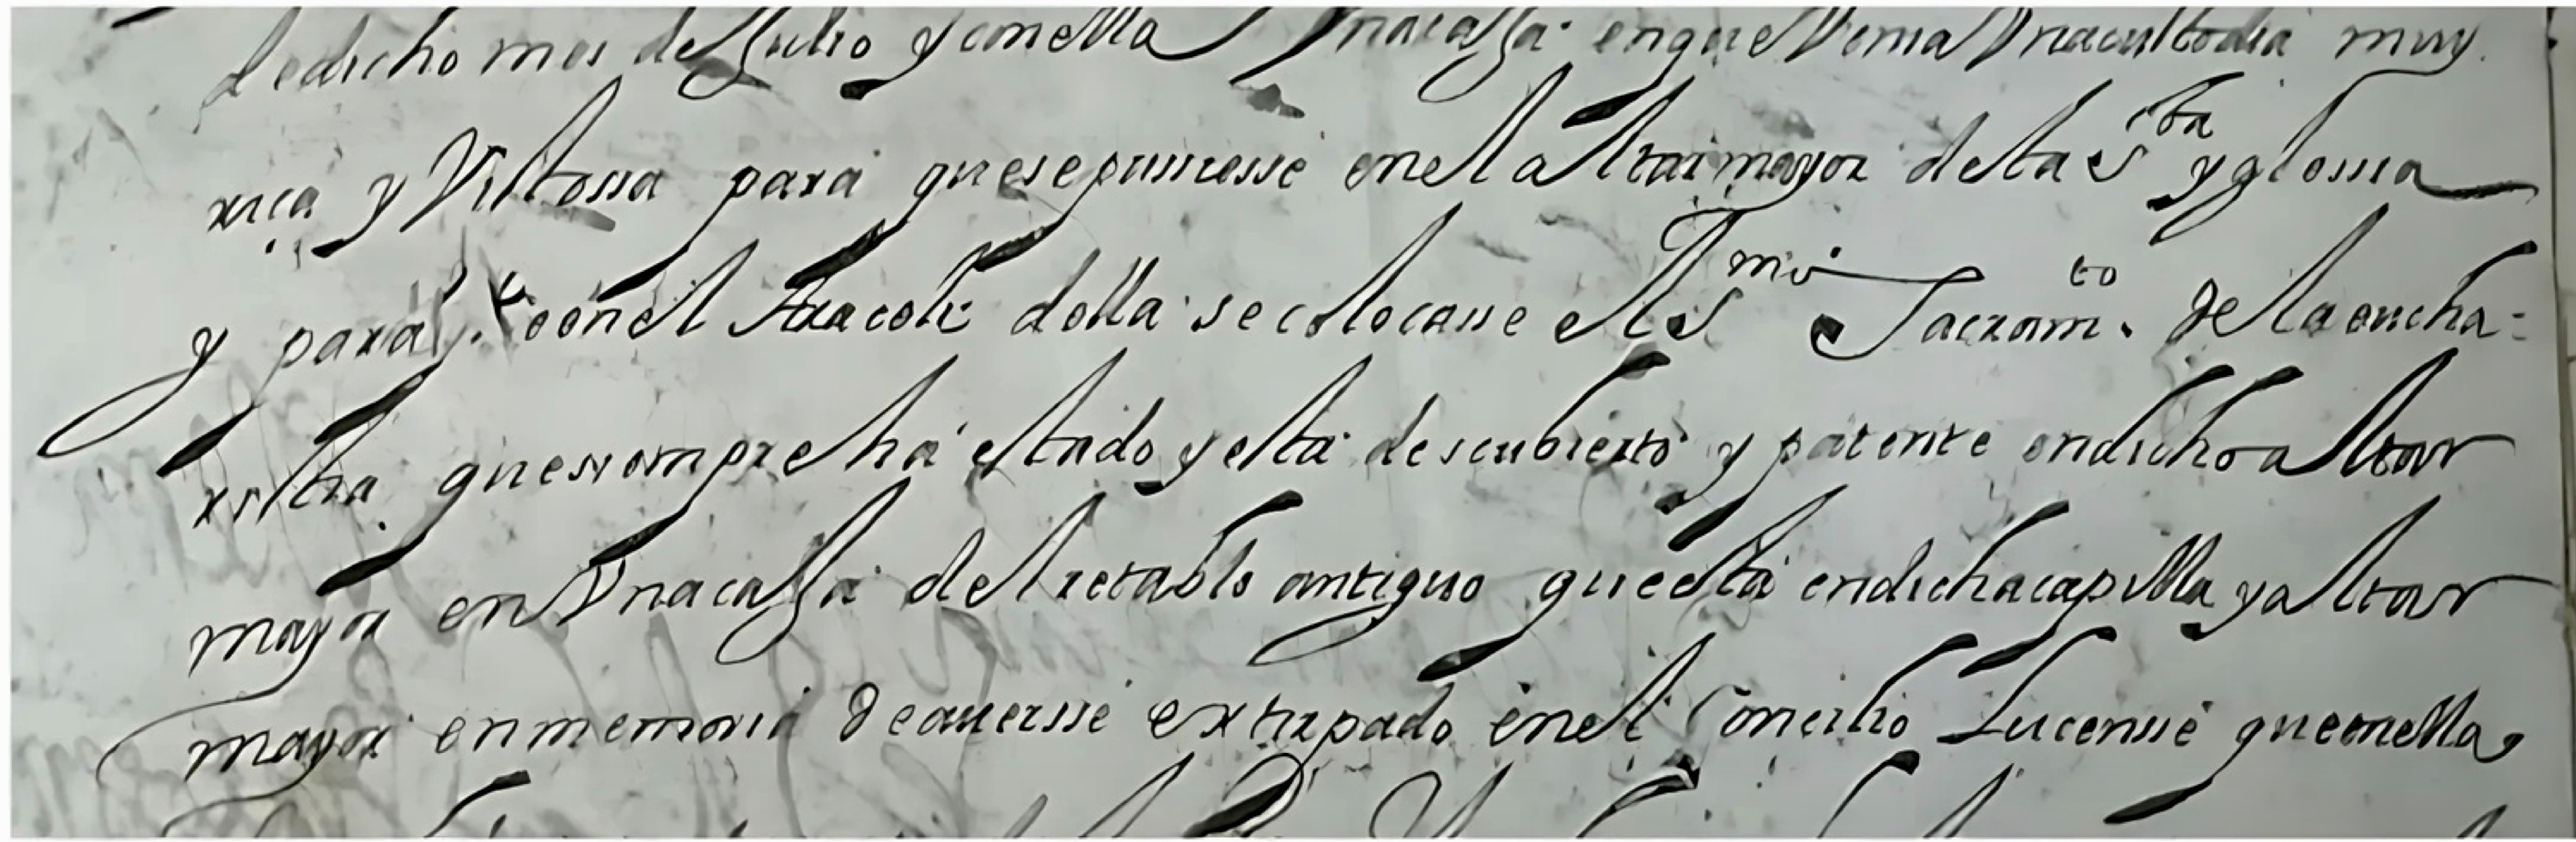 de dicho mes de Julio y con ella Vna caxa en que Venia Vna custodia muy
rica y Vistossa para que se pussiesse en el altar mayor de la Sta yglessia
y para q.e con el della se colocasse el SSmo Sacram.to de la eucha=
ristia que siempre há estado y está descubierto y patente en dicho altar
mayor en Vna caxa del retablo antiguo que está en dicha capilla y altar
mayor en memoria de auersse extirpado en el Concilio Lucensse que en ella